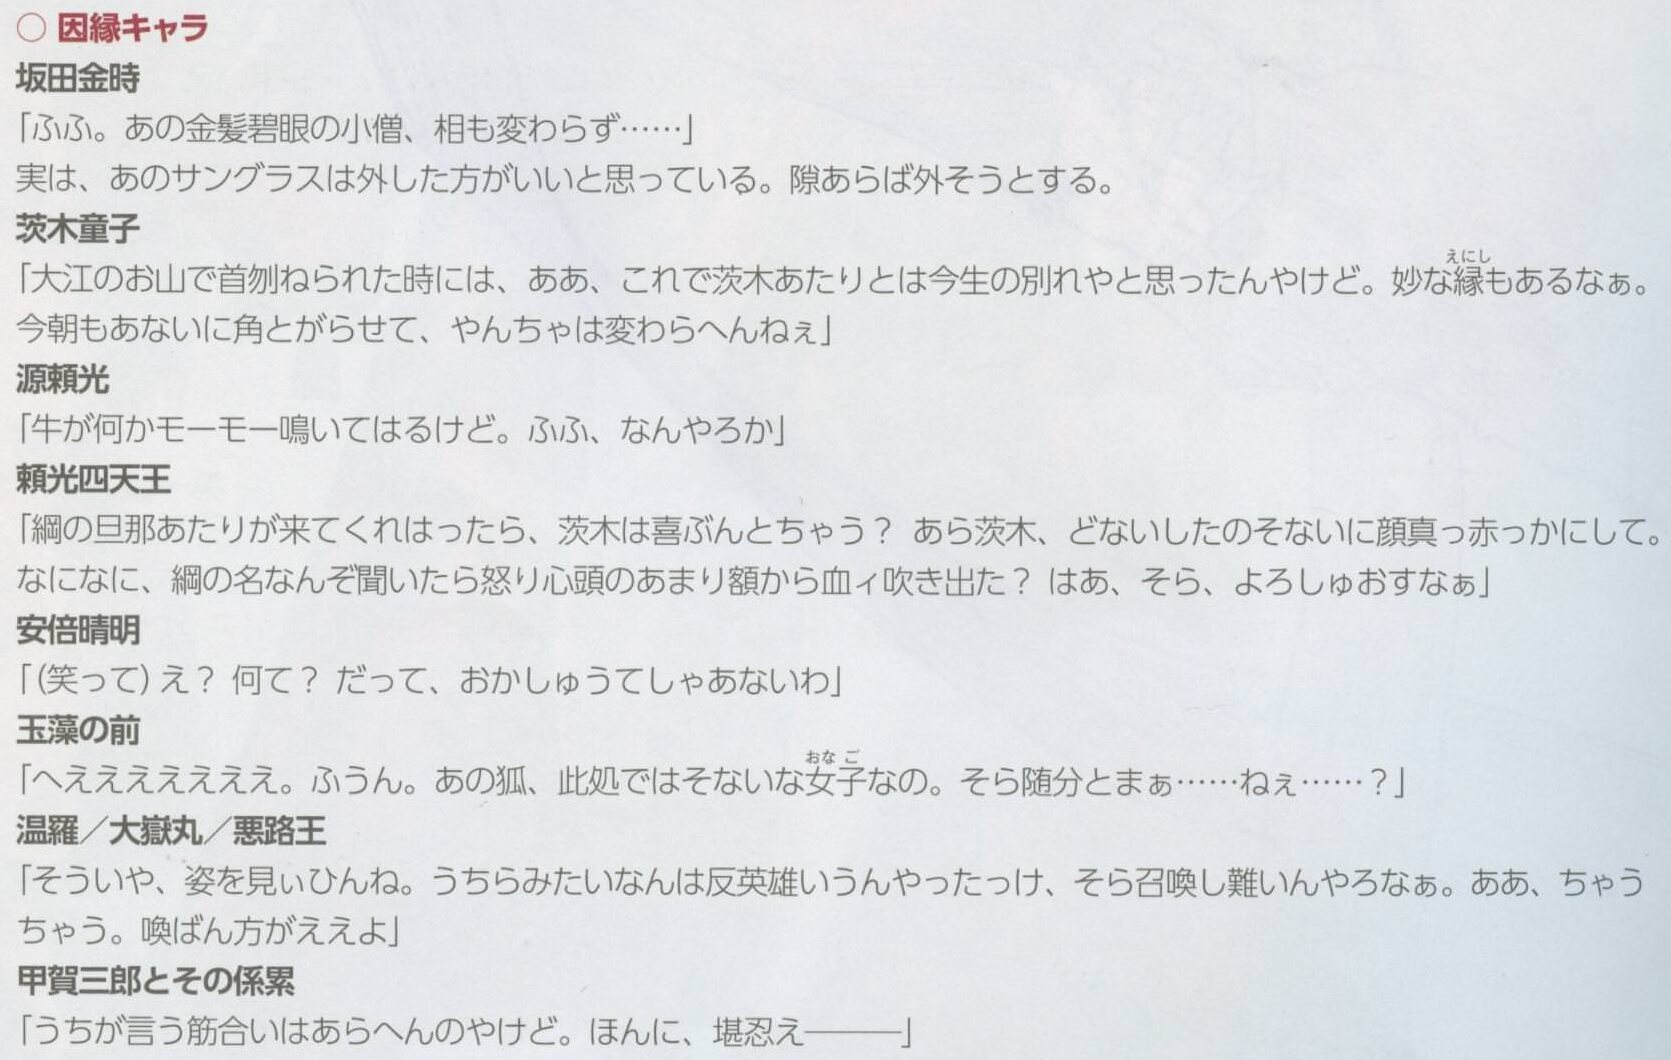 ○ 因縁キャラ
坂田金時
「ふふ。あの金髪碧眼の小僧、相も変わらず……」
実は、あのサングラスは外した方がいいと思っている。隙あらば外そうとする。
茨木童子
えにし
「大江のお山で首刎ねられた時には、ああ、これで茨木あたりとは今生の別れやと思ったんやけど。妙な縁もあるなぁ。
今朝もあないに角とがらせて、やんちゃは変わらへんねぇ」
源頼光
「牛が何かモーモー鳴いてはるけど。ふふ、なんやろか」
頼光四天王
「綱の旦那あたりが来てくれはったら、茨木は喜ぶんとちゃう？ あら茨木、どないしたのそないに顔真っ赤っかにして。
なになに、綱の名なんぞ聞いたら怒り心頭のあまり額から血ィ吹き出た？ はあ、そら、よろしゅおすなぁ」
安倍晴明
「（笑って）え？ 何て？ だって、おかしゅうてしゃあないわ」
玉藻の前
おなご
「へええええええええ。ふうん。あの狐、此処ではそないな女子なの。そら随分とまぁ……ねぇ……？」
温羅／大嶽丸／悪路王
「そういや、姿を見ぃひんね。うちらみたいなんは反英雄いうんやったっけ、そら召喚し難いんやろなぁ。ああ、ちゃう
ちゃう。喚ばん方がええよ」
甲賀三郎とその係累
「うちが言う筋合いはあらへんのやけど。ほんに、堪忍え―――」